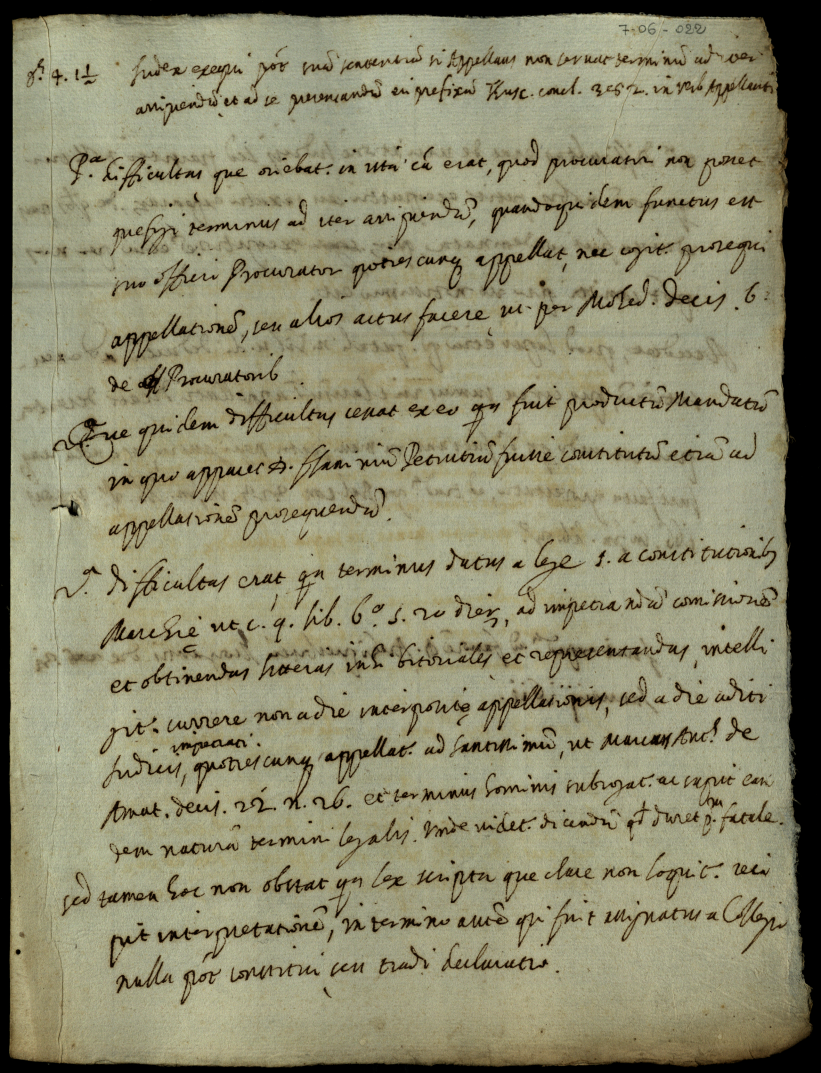 7-06-022
Judex exequi pót suā sententiā si Appellans non servat terminū ad iter
arripiendū et ad se presentandū ei prefixū Tusc. concl. 382. in verb Appellanti
P.ª difficultas que oriebat. in istā cā erat, quod procuratori non posset
prefigi terminus ad iter arripiendū, quandoquidem functus est
suo officio Procurator quotiescunq appellat, nec cogit. prosequi
appellationē, seu alios actus facere ut per Mohed. decis. 6
de Procuratorib.
Que quidem difficultas cessat ex eo qª fuit productū Mandatū
in quo apparet D. Flaminiū Petrutiū fuisse constitutū etiā ad
appellationē prosequendā.
2.ª difficultas erat, qª terminus datus a lege s. a constitutionibȝ
Marchię ut c. 9. lib. 6.º s. 20 dierȝ, ad impetrandā comissionē
et obtinendas litteras inhibitoriales et representandas, intelli
git. currere non a die interpositę appellationis, sed a die aditi
Judicis, impetrati. quotiescunq appellat. ad Santissimū, ut Marcus Ant. de
Amat. decis. 22. n. 26. et terminus hominis subrogat. ac sapit ean
dem naturā termini legalis. Unde videt. dicendū qd duret pm fatale.
sed tamen hoc non obstat qª lex scripta que clare non loquit. reci
pit interpretationē, in termino autē qui fuit assignatus a Collegio
nulla pót constitui seu tradi declaratio.